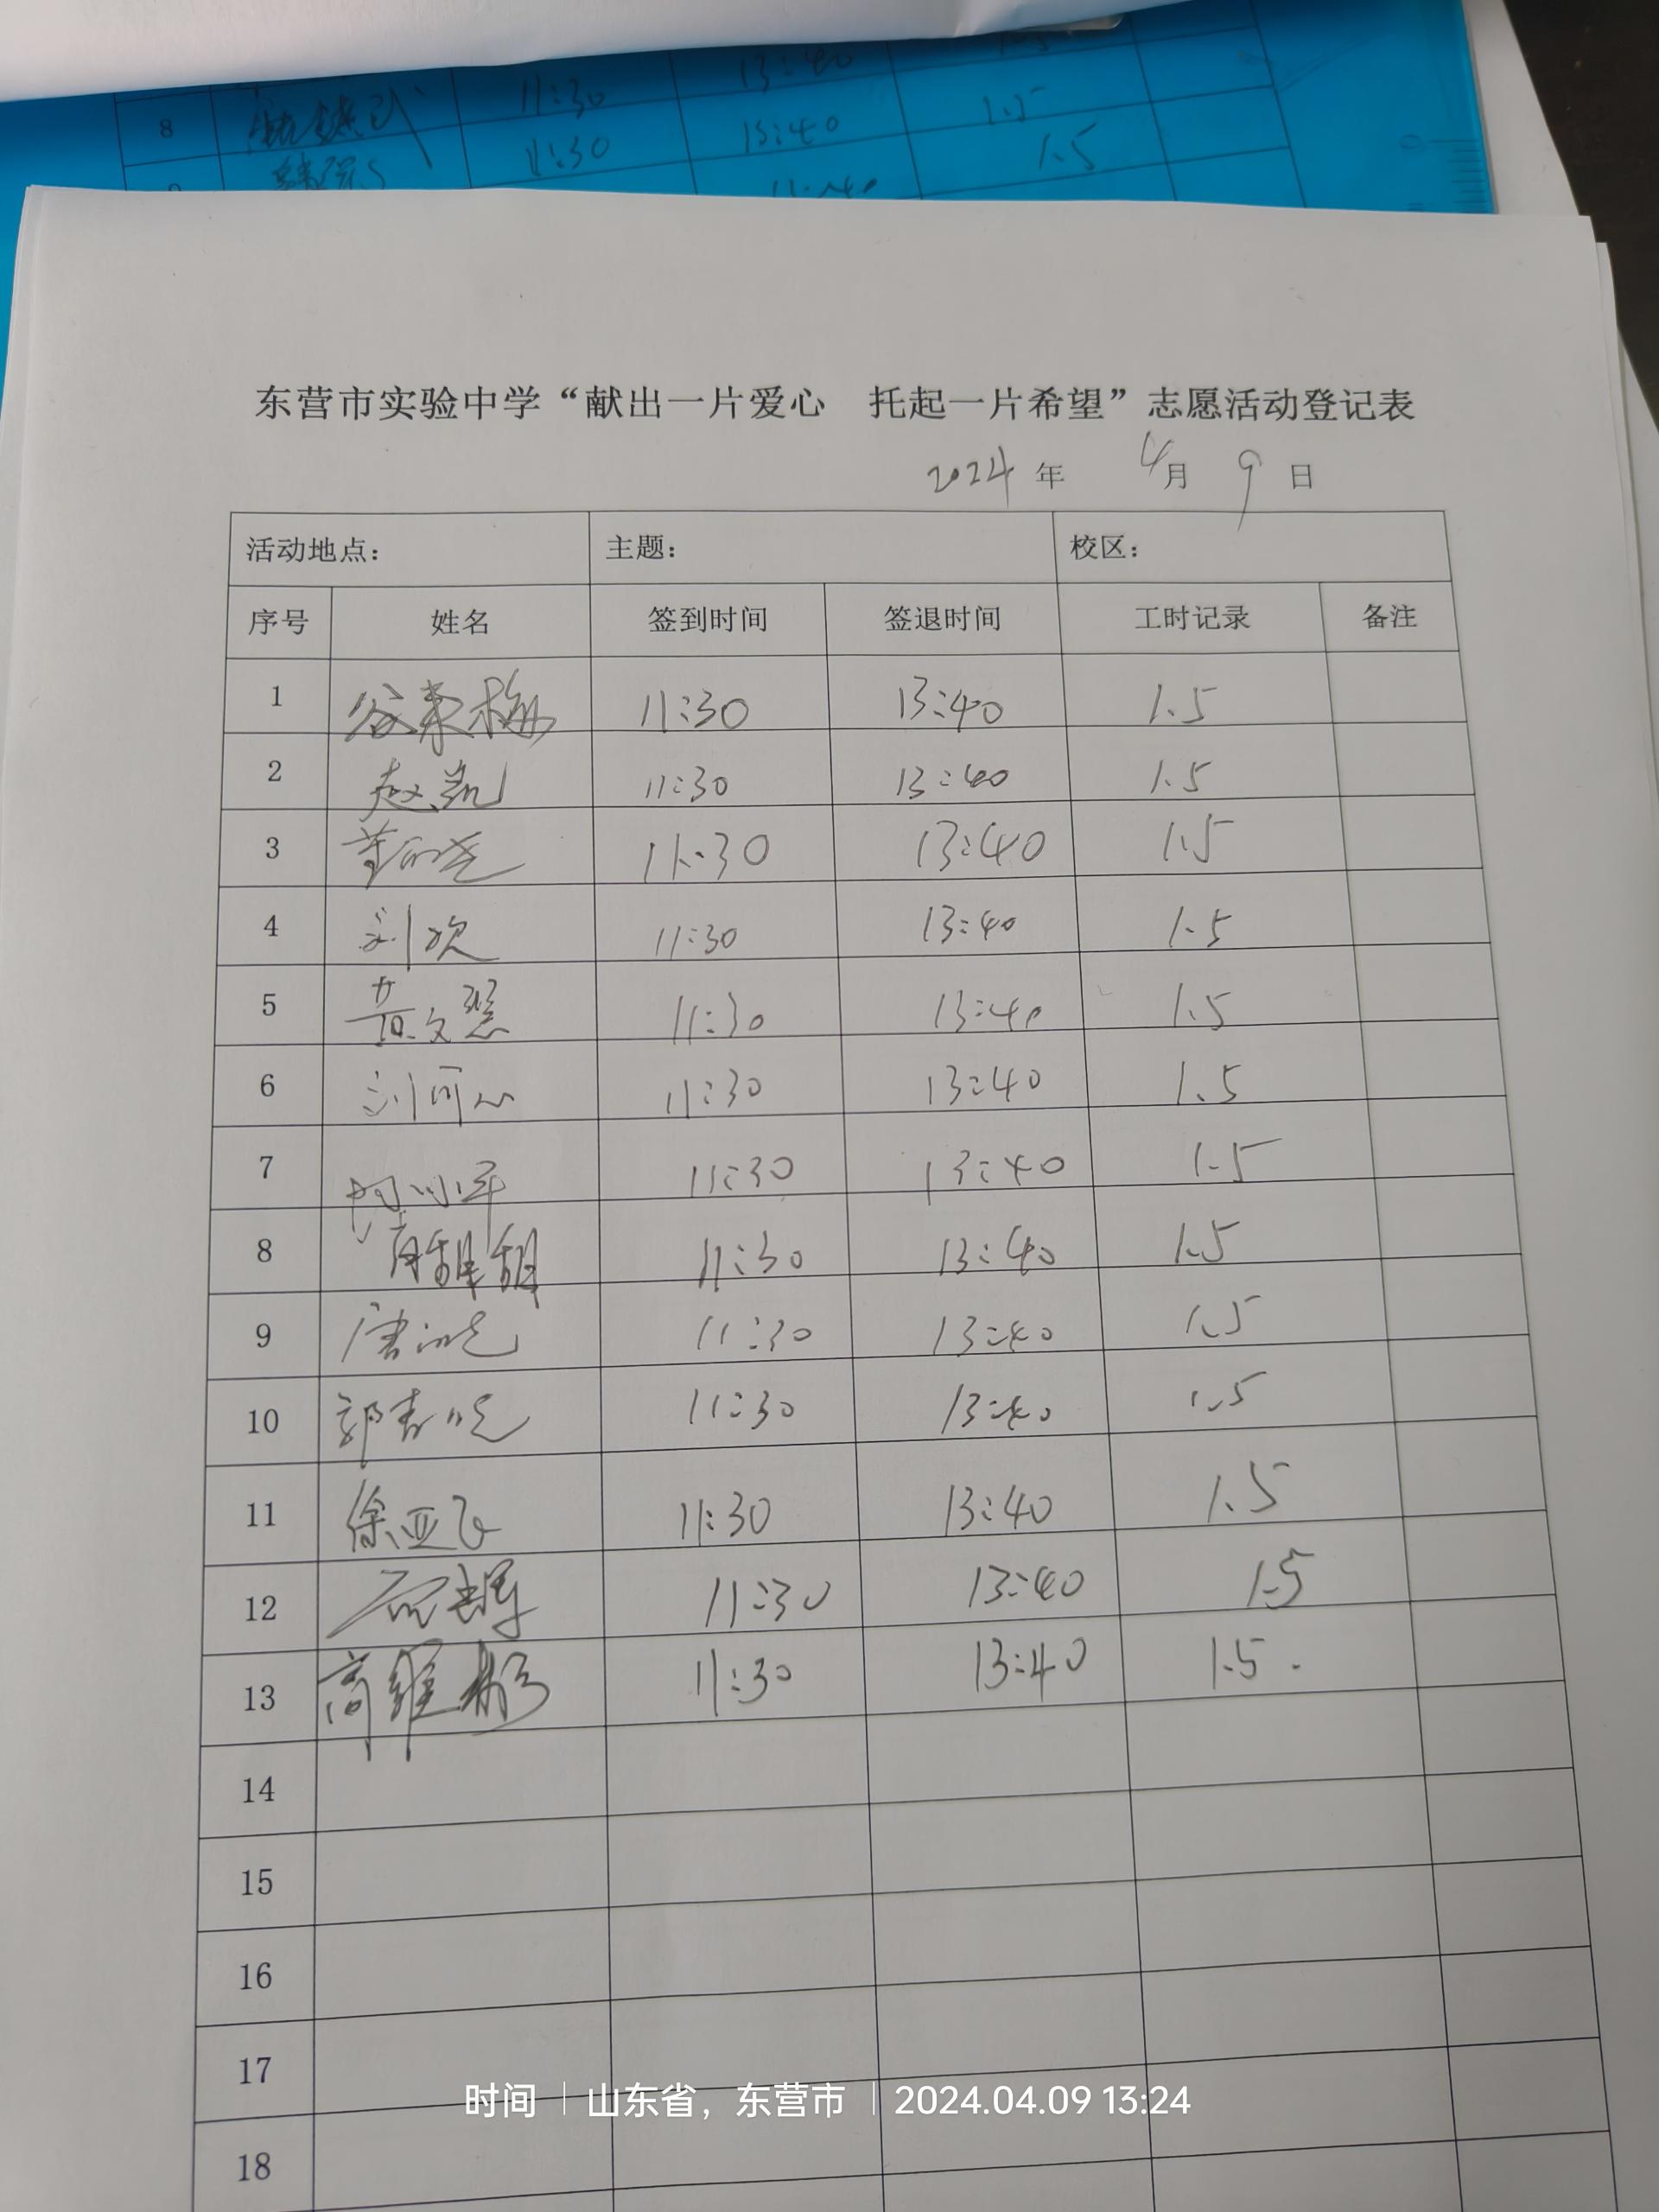 13:40 1.5
8 11:30 13:40 1.5
11:30
东营市实验中学“献出一片爱心 托起一片希望”志愿活动登记表
2024 年 4月 9 日
活动地点： 主题： 校区：
序号 姓名 签到时间 签退时间 工时记录 备注
1 谷来梅 11:30 13:40 1.5
2 赵凯 11:30 13:40 1.5
3 11:30 13:40 1.5
4 刘欢 11:30 13:40 1.5
5 黄文慧 11:30 13:40 1.5
6 刘可心 11:30 13:40 1.5
7 11:30 13:40 1.5
8 11:30 13:40 1.5
9 11:30 13:40 1.5
10 11:30 13:40 1.5
11 徐亚飞 11:30 13:40 1.5
12 11:30 13:40 1.5
13 高维彬 11:30 13:40 1.5.
14
15
16
17
时间 山东省，东营市 2024.04.09 13:24
18